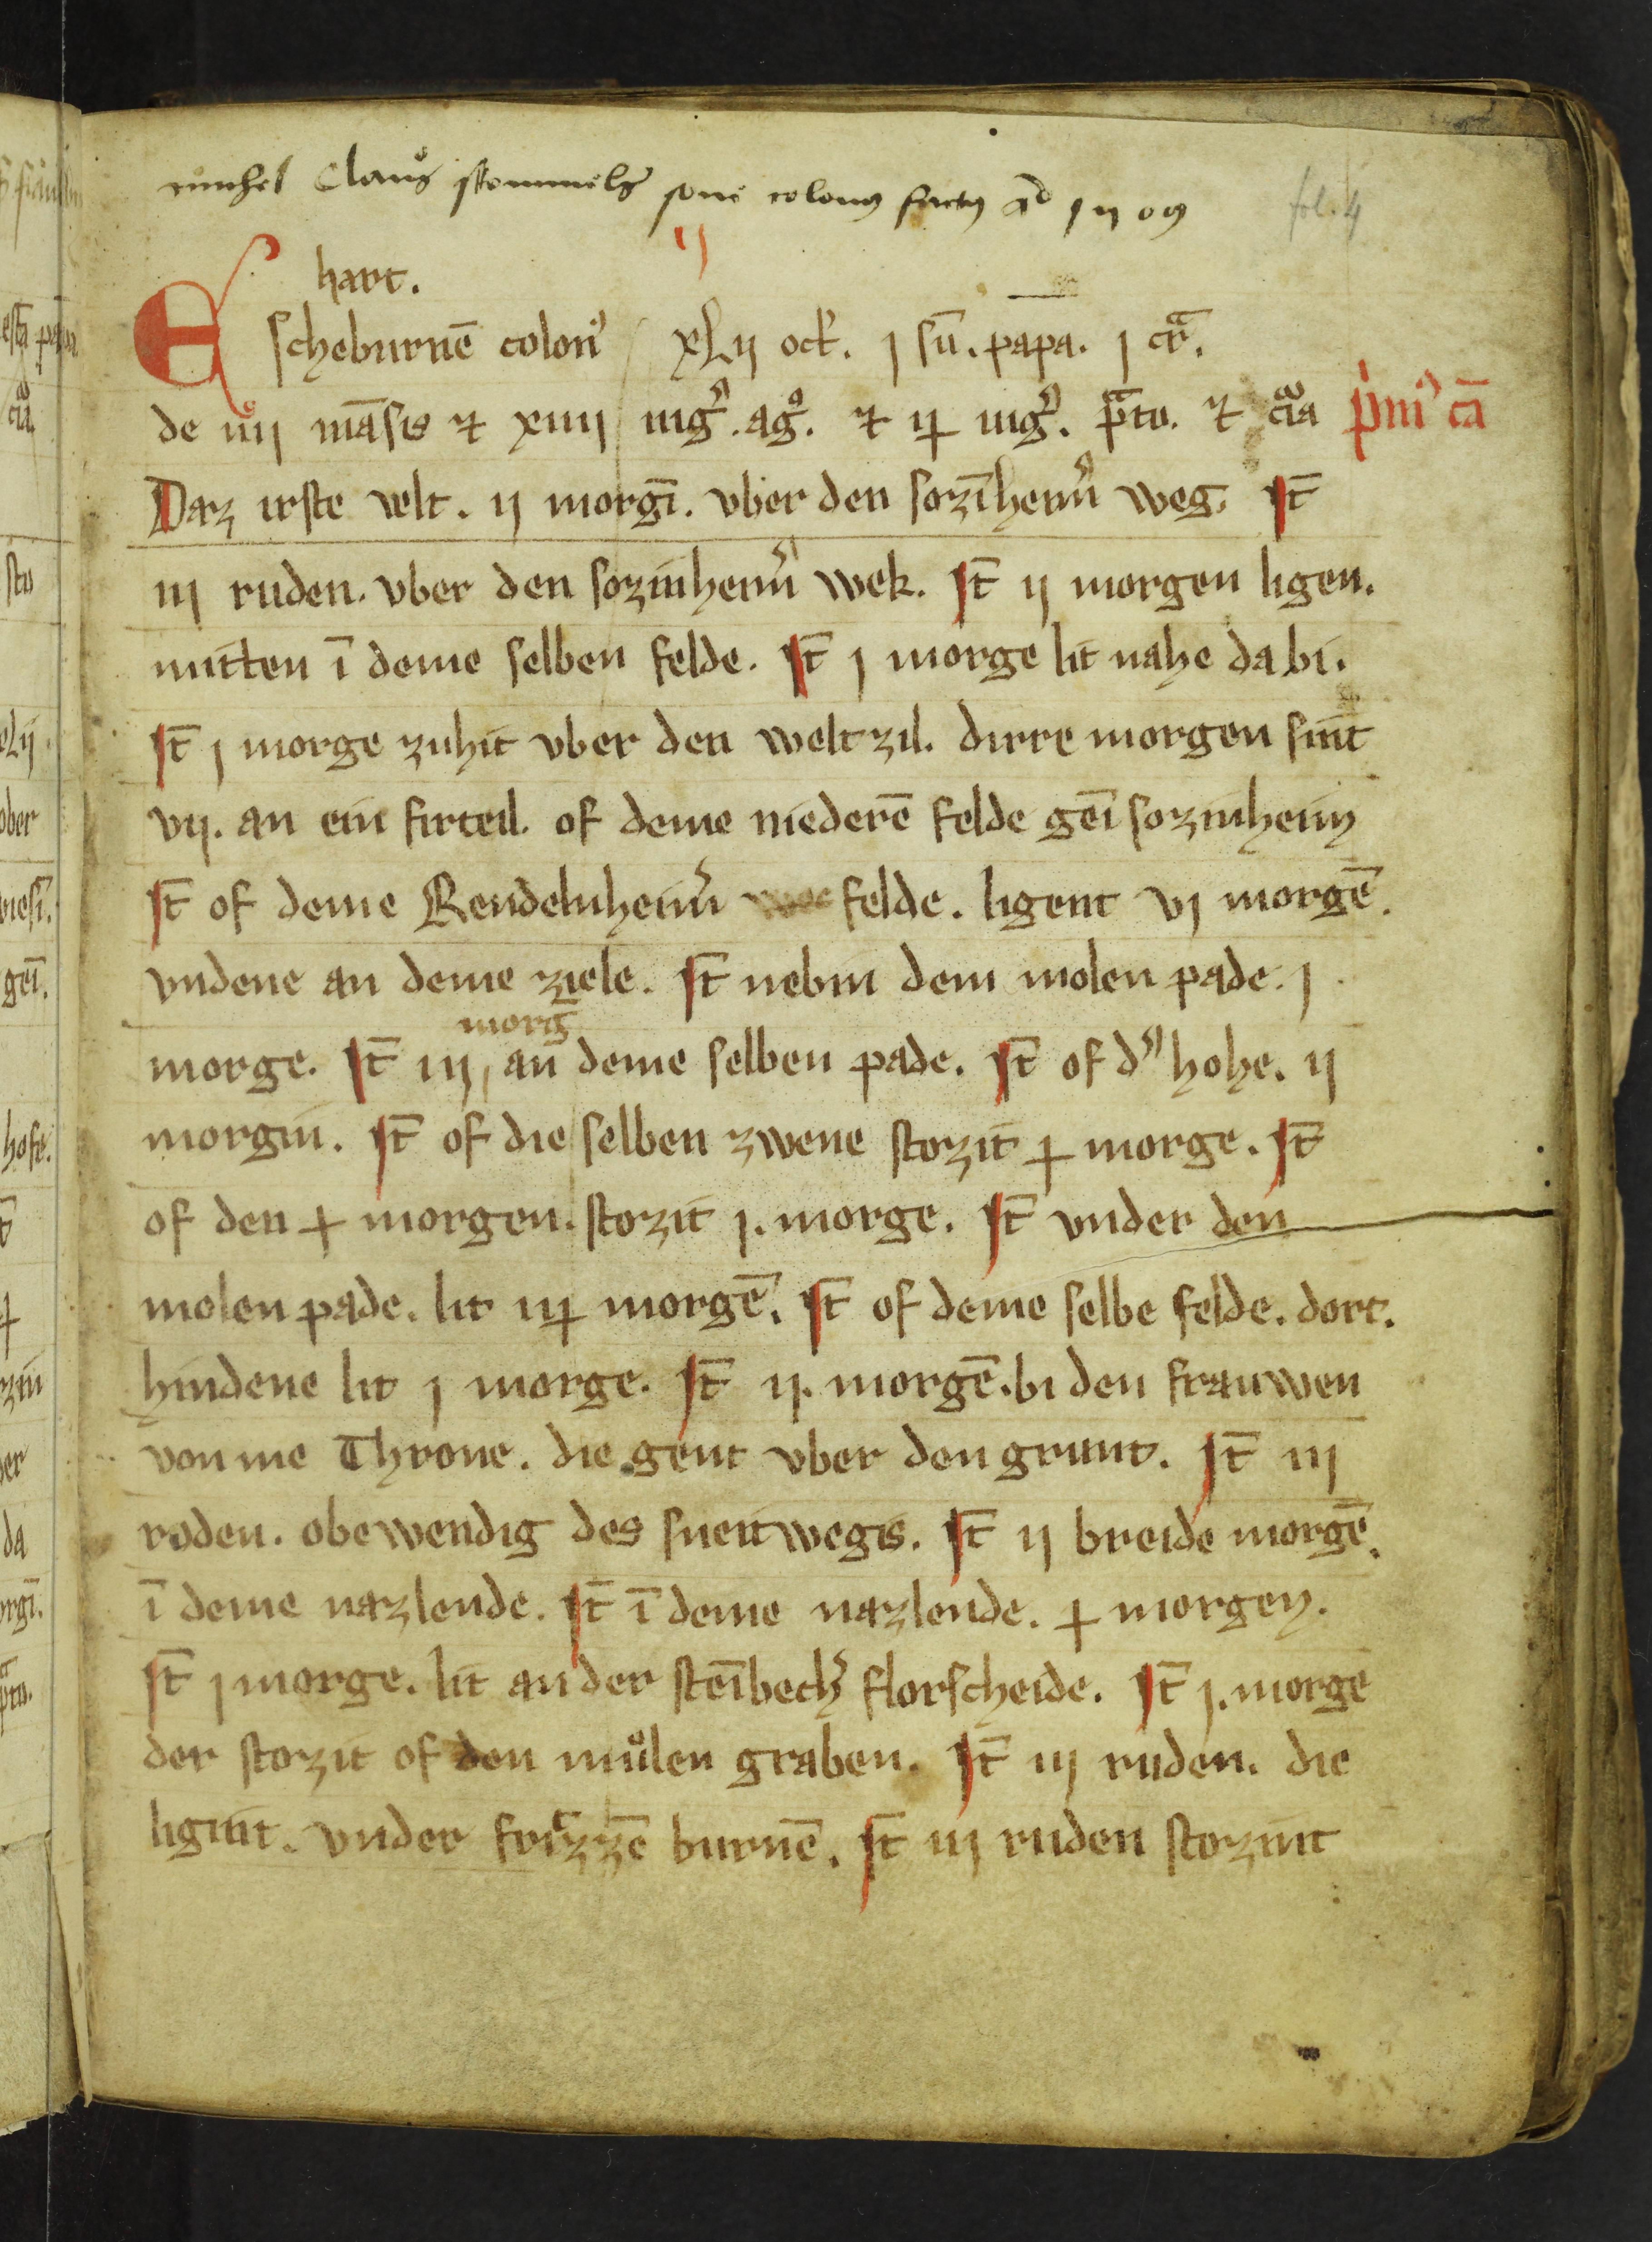 michel Claus stemmels sone colonus factus ad
fol. 4
ij
hart.
Escheburnē colon' xLij ock'. j sū. papa. j cr̄a.
de iiij māsis ⁊ xiiij iug'. ag°. ⁊ iug'. p̄to. ⁊
Daz irste velt. ij morgī. vber den sozīheim' weg. It̄
iij ruden. vber den sozinheim' wek. It̄ ij morgen ligen.
mitten ī deme selben felde. It̄ j morge lit nahe da bi.
It̄ j morge zuhit vber den welt zil. dirre morgen sint
vij. an ein firteil. of deme niederē felde geī sozinheim
It̄ of deme Rendelnheim' felde. ligent vj morgē.
vndene an deme ziele. It̄ nebin dem molen pade. j
morḡ
morge. It̄ iij an deme selben pade. It̄ of d' hohe. ij
morgin. It̄ of die selben zwene stozit morge. It̄
of den morgen. stozit j. morge. It̄ vnder den
molen pade. lit morgē. It̄ of deme selbe felde. dort.
hindene lit j morge. It̄ ij. morgē. bi den frauwen
von me Throne. die gent vber den grunt. It̄ iij
roden. obewendig des wegis. It̄ ij breide morgē.
ī deme nazlende. It̄ ī deme nazlende. morgen.
It̄ j morge. lit an der steībech' florscheide. It̄ j. morge
der stozit of den můlen graben. It̄ iij ruden. die
ligint. vnder burnē. It̄ iij ruden stozint